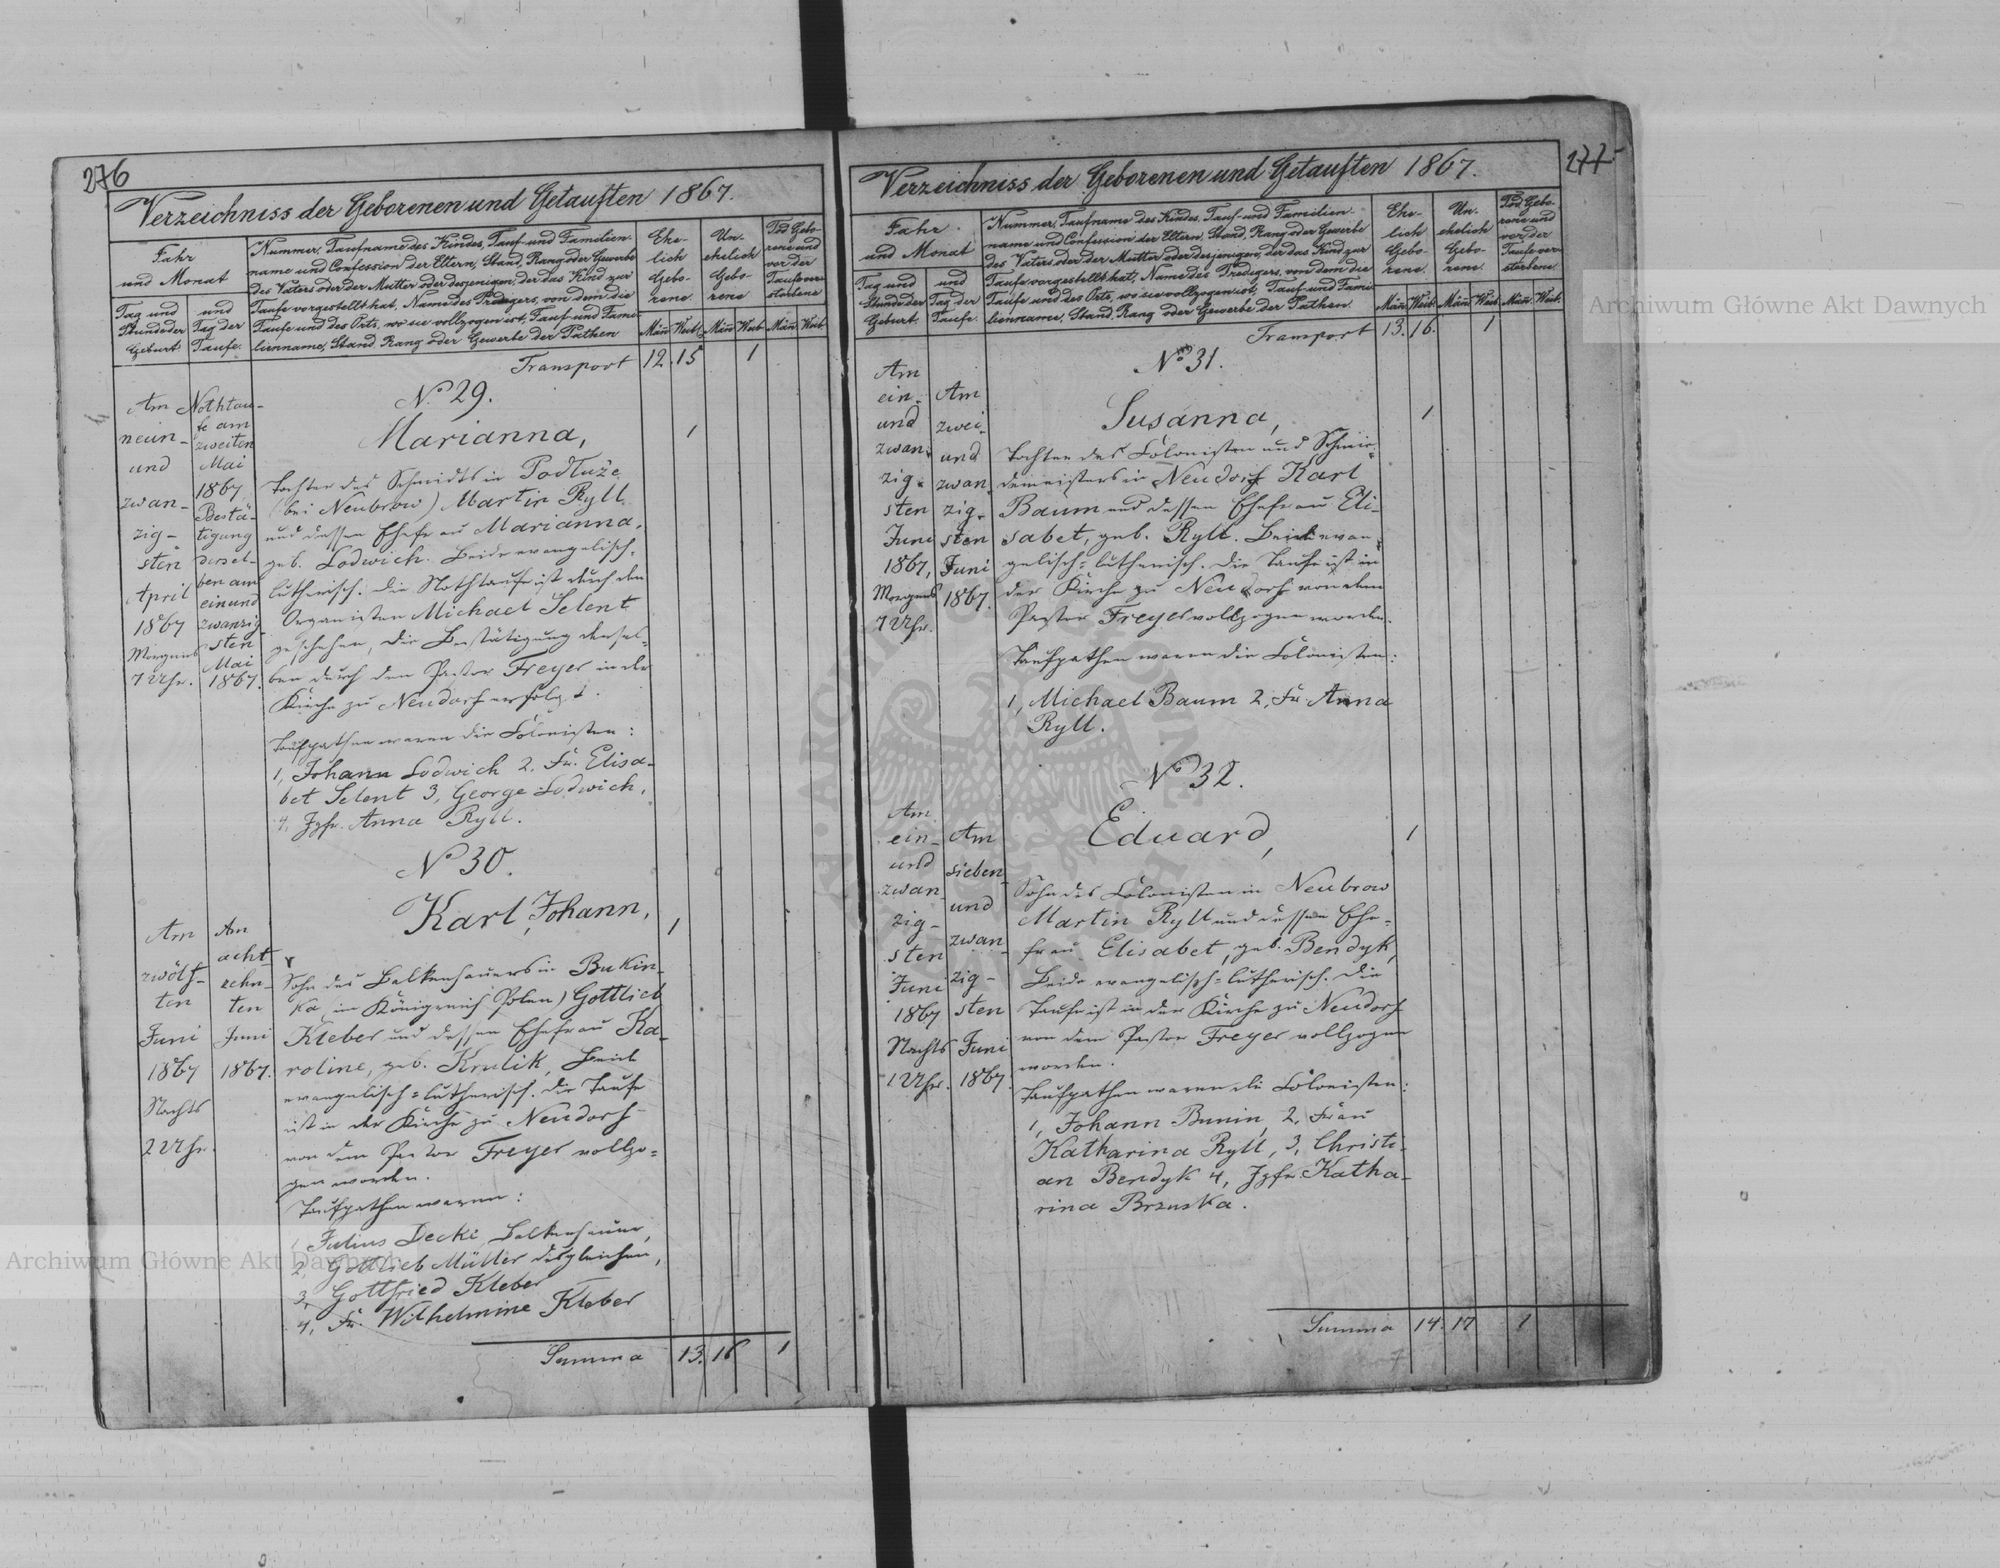 276
Verzeichniss der Geborenen und Getauften 1867.
Jahr und Monat
Tag und Stunde der Geburt.
und Tag der Taufe.
Nummer, Taufname des Kindes, Tauf- und Familien-
name und Confession der Eltern, Stand, Rang oder Gewerbe
des Vaters oder der Mutter oder desjenigen, der das Kind zur
Taufe vorgestellt hat, Name des Predigers, von dem die
Taufe und des Orts, wo sie vollzogen ist, Tauf- und Fami-
lienname, Stand, Rang oder Gewerbe der Pathen
Ehe-
lich
Gebo-
rene.
Un-
ehelich
Gebo-
rene
Tod Gebo-
rene und
vor der
Taufe ver-
storbene
Män. Weib. Män. Weib. Män. Weib.
Transport 12. 15 1
Am
neun-
und
zwan-
zig-
sten
April
1867
Morgens
7 Uhr.
Nothtau-
fe am
zweiten
Mai
1867
Bestä-
tigung
dersel-
ben am
ein und
zwanzig-
sten
Mai
1867.
No 29.
Marianna, 1
Tochter des Schmidts in Podłuże
(bei Neubrow) Martin Ryll
und dessen Ehefrau Marianna,
geb. Lodwich. Beide evangelisch-
lutherisch. Die Nothtaufe ist durch den
Organisten Michael Selent
geschehen, die Bestätigung dersel-
ben durch den Pastor Freyer in der
Kirche zu Neudorf erfolgt.
Taufpathen waren die Colonisten:
1, Johann Lodwich 2, Fr. Elisa-
bet Selent 3, George Lodwich,
4, Jgfr. Anna Ryll.
Am
zwölf-
ten
Juni
1867
Nachts
2 Uhr.
Am
acht-
zehn-
ten
Juni
1867.
No 30.
Karl, Johann, 1
Sohn des Balkenhauers in Bukin-
ka (im Königreich Polen) Gottlieb
Kleber und dessen Ehefrau Ka-
roline, geb. Krulik, Beide
evangelisch-lutherisch. Die Taufe
ist in der Kirche zu Neudorf
von dem Pastor Freyer vollzo-
gen worden.
Taufpathen waren:
1, Julius Decki, Balkenhauer,
2, Gottlieb Müller desgleichen,
3, Gottfried Kleber
4, Fr. Wilhelmine Kleber
Summa 13. 16 1
277
Verzeichniss der Geborenen und Getauften 1867.
Jahr
und Monat
Tag und
Stunde der
Geburt.
und
Tag der
Taufe.
Nummer, Taufname des Kindes, Tauf- und Familien-
name und Confession der Eltern, Stand, Rang oder Gewerbe
des Vaters oder der Mutter oder desjenigen, der das Kind zur
Taufe vorgestellt hat, Name des Predigers, von dem die
Taufe und des Orts, wo sie vollzogen ist, Tauf- und Fami-
lienname, Stand, Rang oder Gewerbe der Pathen.
Ehe-
lich
Gebo-
rene.
Un-
ehelich
Gebo-
rene.
Tod Gebo-
rene und
vor der
Taufe ver-
storbene
Män. Weib. Män. Weib. Män. Weib.
Transport 13. 16. 1
Am
ein-
und
zwan-
zig-
sten
Juni
1867,
Morgens
7 Uhr.
Am
zwei-
und
zwan-
zig-
sten
Juni
1867.
No 31.
Susanna, 1
Tochter des Colonisten und Schmie-
demeisters in Neudorf Karl
Baum und dessen Ehefrau Eli-
sabet, geb. Ryll. Beide evan-
gelisch-lutherisch. Die Taufe ist in
der Kirche zu Neudorf von dem
Pastor Freyer vollzogen worden.
Taufpathen waren die Colonisten:
1, Michael Baum 2, Fr. Anna
Ryll.
Am
ein-
und
zwan-
zig-
sten
Juni
1867
Nachts
1 Uhr.
Am
sieben-
und
zwan-
zig-
sten
Juni
1867.
No 32.
Eduard, 1
Sohn des Colonisten in Neubrow
Martin Ryll und dessen Ehe-
frau Elisabet, geb. Bendyk,
Beide evangelisch-lutherisch. Die
Taufe ist in der Kirche zu Neudorf
von dem Pastor Freyer vollzogen
worden.
Taufpathen waren die Colonisten:
1, Johann Bunin, 2, Frau
Katharina Ryll, 3, Christi-
an Bendyk 4, Jgfr. Katha-
rina Brzuska.
Summa 14. 17 1
Archiwum Główne Akt Dawnych
Archiwum Główne Akt Dawnych